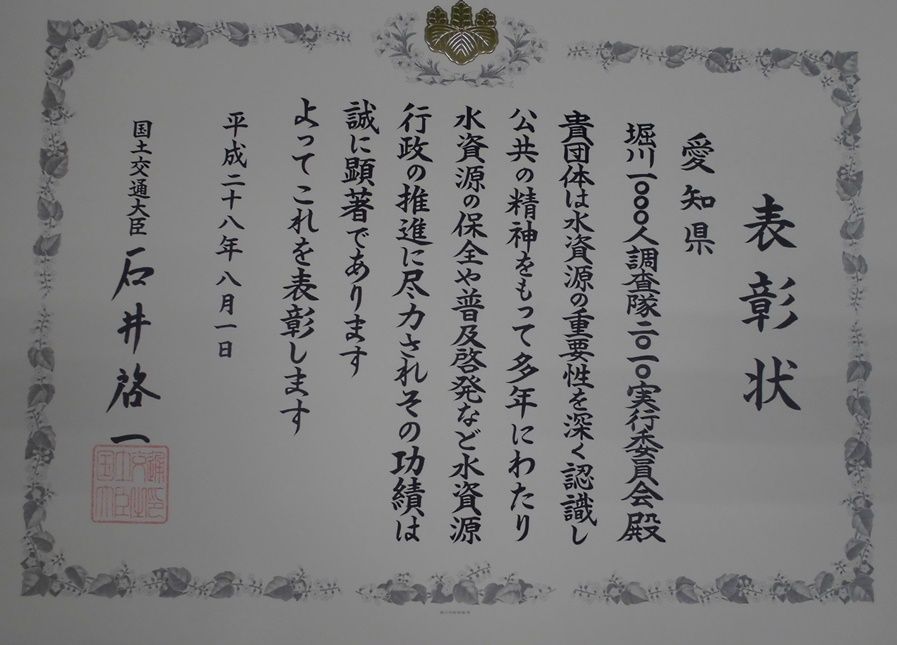 表彰状
愛知県
堀川一〇〇〇人調査隊二〇一〇実行委員会殿
貴団体は水資源の重要性を深く認識し
公共の精神をもって多年にわたり
水資源の保全や普及啓発など水資源
行政の推進に尽力されその功績は
誠に顕著であります
よってこれを表彰します
平成二十八年八月一日
国土交通大臣 石井啓一